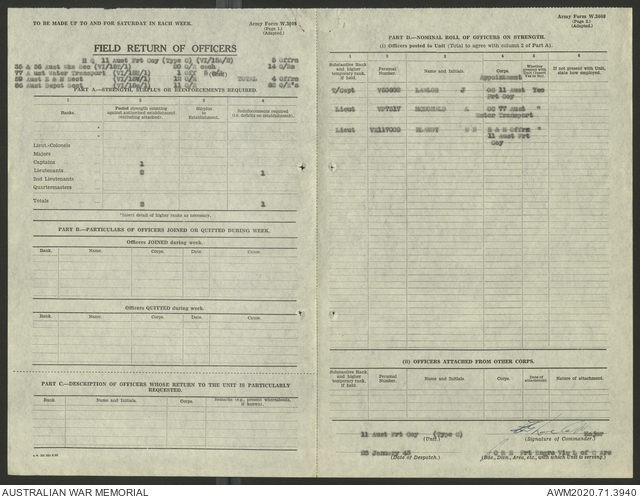 TO BE MADE UP TO AND FOR SATURDAY IN EACH WEEK.
Army Form W.3008
(Page 1.)
(Adapted.)
FIELD RETURN OF OFFICERS
H Q 11 Aust Frt Coy (Type C)
5 Offrs
55 A 56 Aust Wks Sec
14 O/Rs
77 A ust Water Transport
1 Off
59 Aust E & M Sect
TOTAL 4 Offrs
66 Aust Depot Sect
PART A.—STRENGTH, SURPLUS OR REINFORCEMENTS REQUIRED.
1
2
3
4
Ranks.
Posted strength counting against authorized establishment (excluding attached).
Surplus to Establishment.
Reinforcements required
Lieut.-Colonels
Majors
Captains 1
Lieutenants 2 1
2nd Lieutenants
Quartermasters
Totals 3 1
*Insert detail of higher ranks as necessary.
PART B.—PARTICULARS OF OFFICERS JOINED OR QUITTED DURING WEEK.
Officers JOINED during week.
Rank. Name. Corps. Date. Cause.
Officers QUITTED during week.
Rank. Name. Corps. Date. Cause.
PART C.—DESCRIPTION OF OFFICERS WHOSE RETURN TO THE UNIT IS PARTICULARLY REQUESTED.
Rank. Name and Initials. Corps. Remarks (e.g., present whereabouts, if known).
Army Form W.3008
(Page 2.)
(Adapted.)
PART D.—NOMINAL ROLL OF OFFICERS ON STRENGTH.
(I) Officers posted to Unit (Total to agree with column 2 of Part A).
1 2 3 4 5 6
Substantive Rank and higher temporary rank, if held.
Personal Number.
Name and Initials.
Corps.
Appointment
If not present with Unit, state how employed.
T/Capt J OC 11 Aust Yes
Frt Coy
Lieut McDONALD A OC 77 Aust "
Water Transport
Lieut E & M Offrs "
11 Aust Frt
Coy
(II) OFFICERS ATTACHED FROM OTHER CORPS.
Substantive Rank and higher temporary rank, if held.
Personal Number.
Name and Initials.
Corps.
Date of attachment.
Nature of attachment.
11 Aust Frt Coy (Type C)
(Unit.)
Major
(Signature of Commander.)
23 January 43
(Date of Despatch.)
C R E Frt Engrs Vic L of C Area
(Bde., Divn., Area, etc., with which Unit is serving.)
AUSTRALIAN WAR MEMORIAL
AWM2020.71.3940